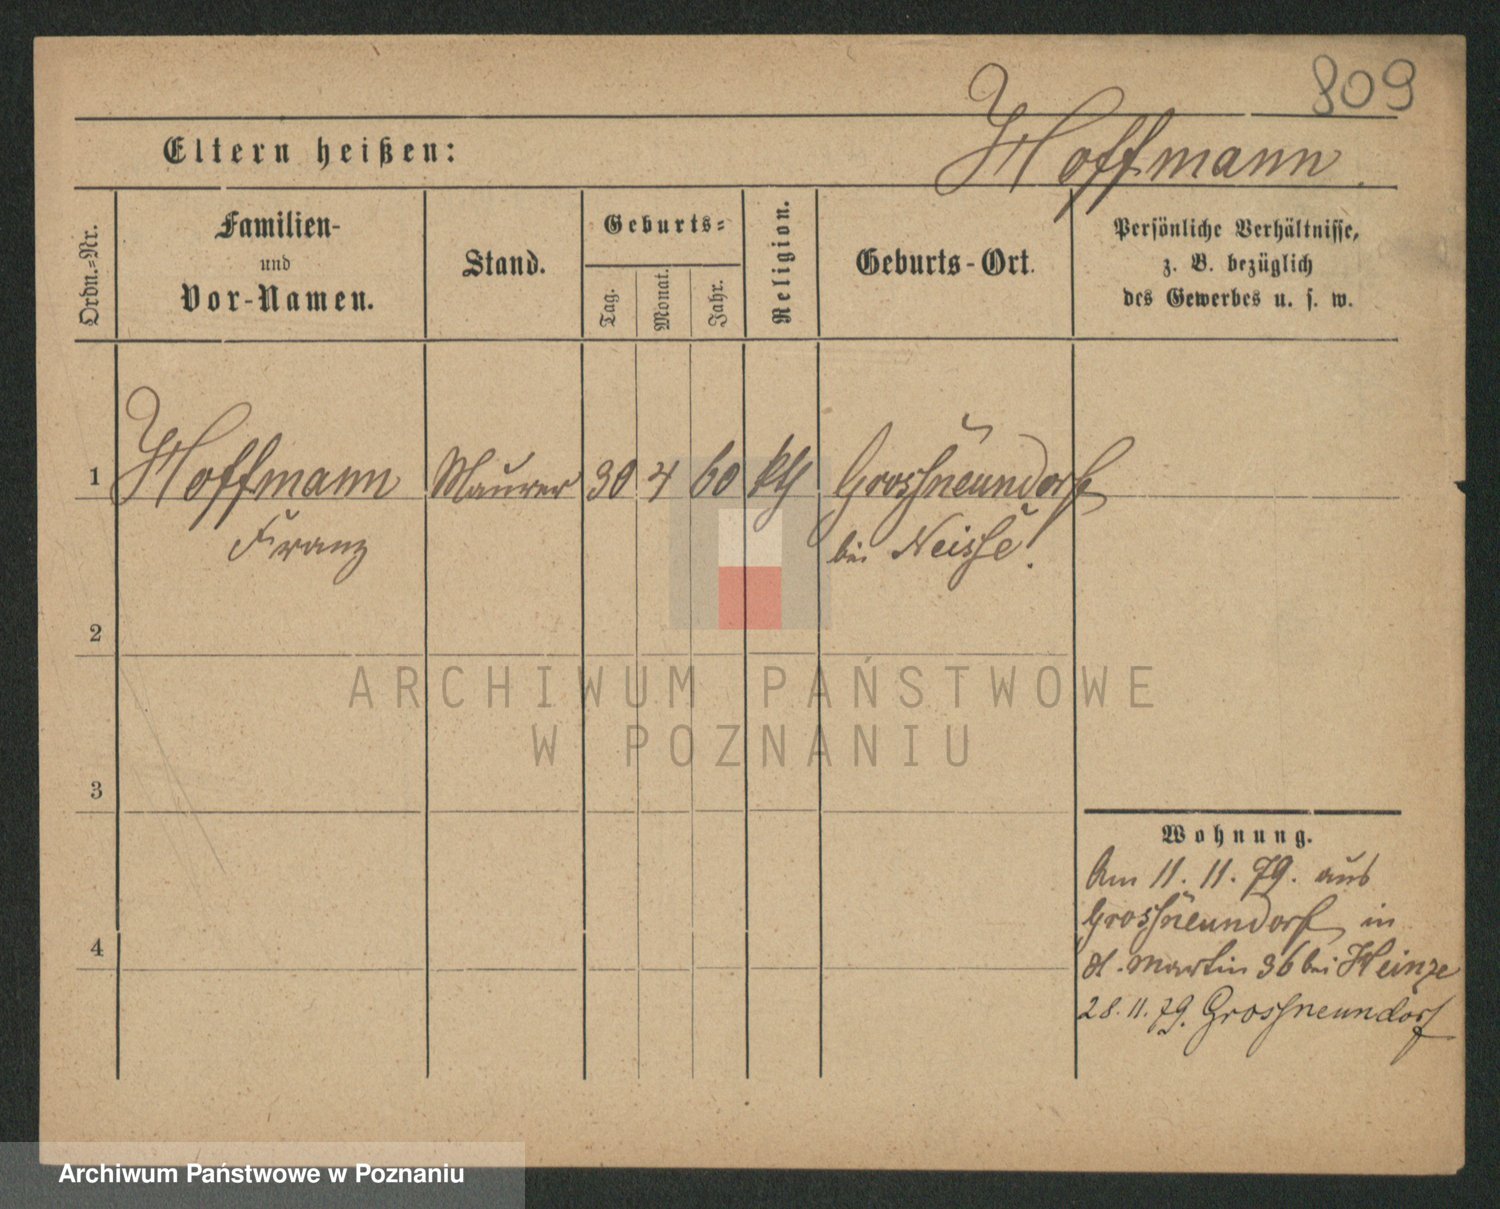 809
Hoffmann.
Eltern heißen:
Ordn.=Nr.
Familien-
und
Vor-Namen.
Stand.
Geburts=
Tag.
Monat.
Jahr.
Religion.
Geburts-Ort.
Persönliche Verhältnisse,
z. B. bezüglich
des Gewerbes u. s. w.
1 Hoffmann Maurer 30 4 60 kth Grossneundorf
Franz bei Neisse.
2
3
4
Wohnung.
Am 11. 11. 79. aus
Grossneundorf in
St. Martin 36 bei Heinze
28. 11. 79. Grossneundorf
ARCHIWUM PAŃSTWOWE
W POZNANIU
Archiwum Państwowe w Poznaniu